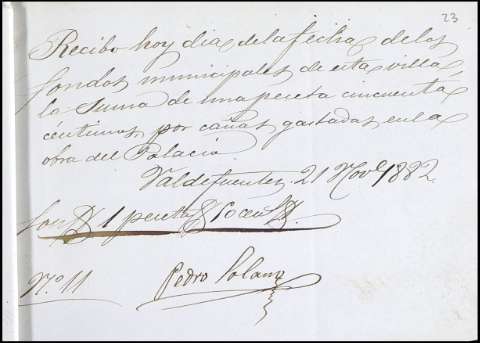 23
Recibo hoy dia de la fecha de los
fondos municipales de esta villa
la suma de una peseta cincuenta
céntimos, por cañas gastadas en la
obra del Palacio.
Valdefuentes, 21 Nov.e 1882.
Son 1 peseta 50 cent
N.o 11 Pedro Solano